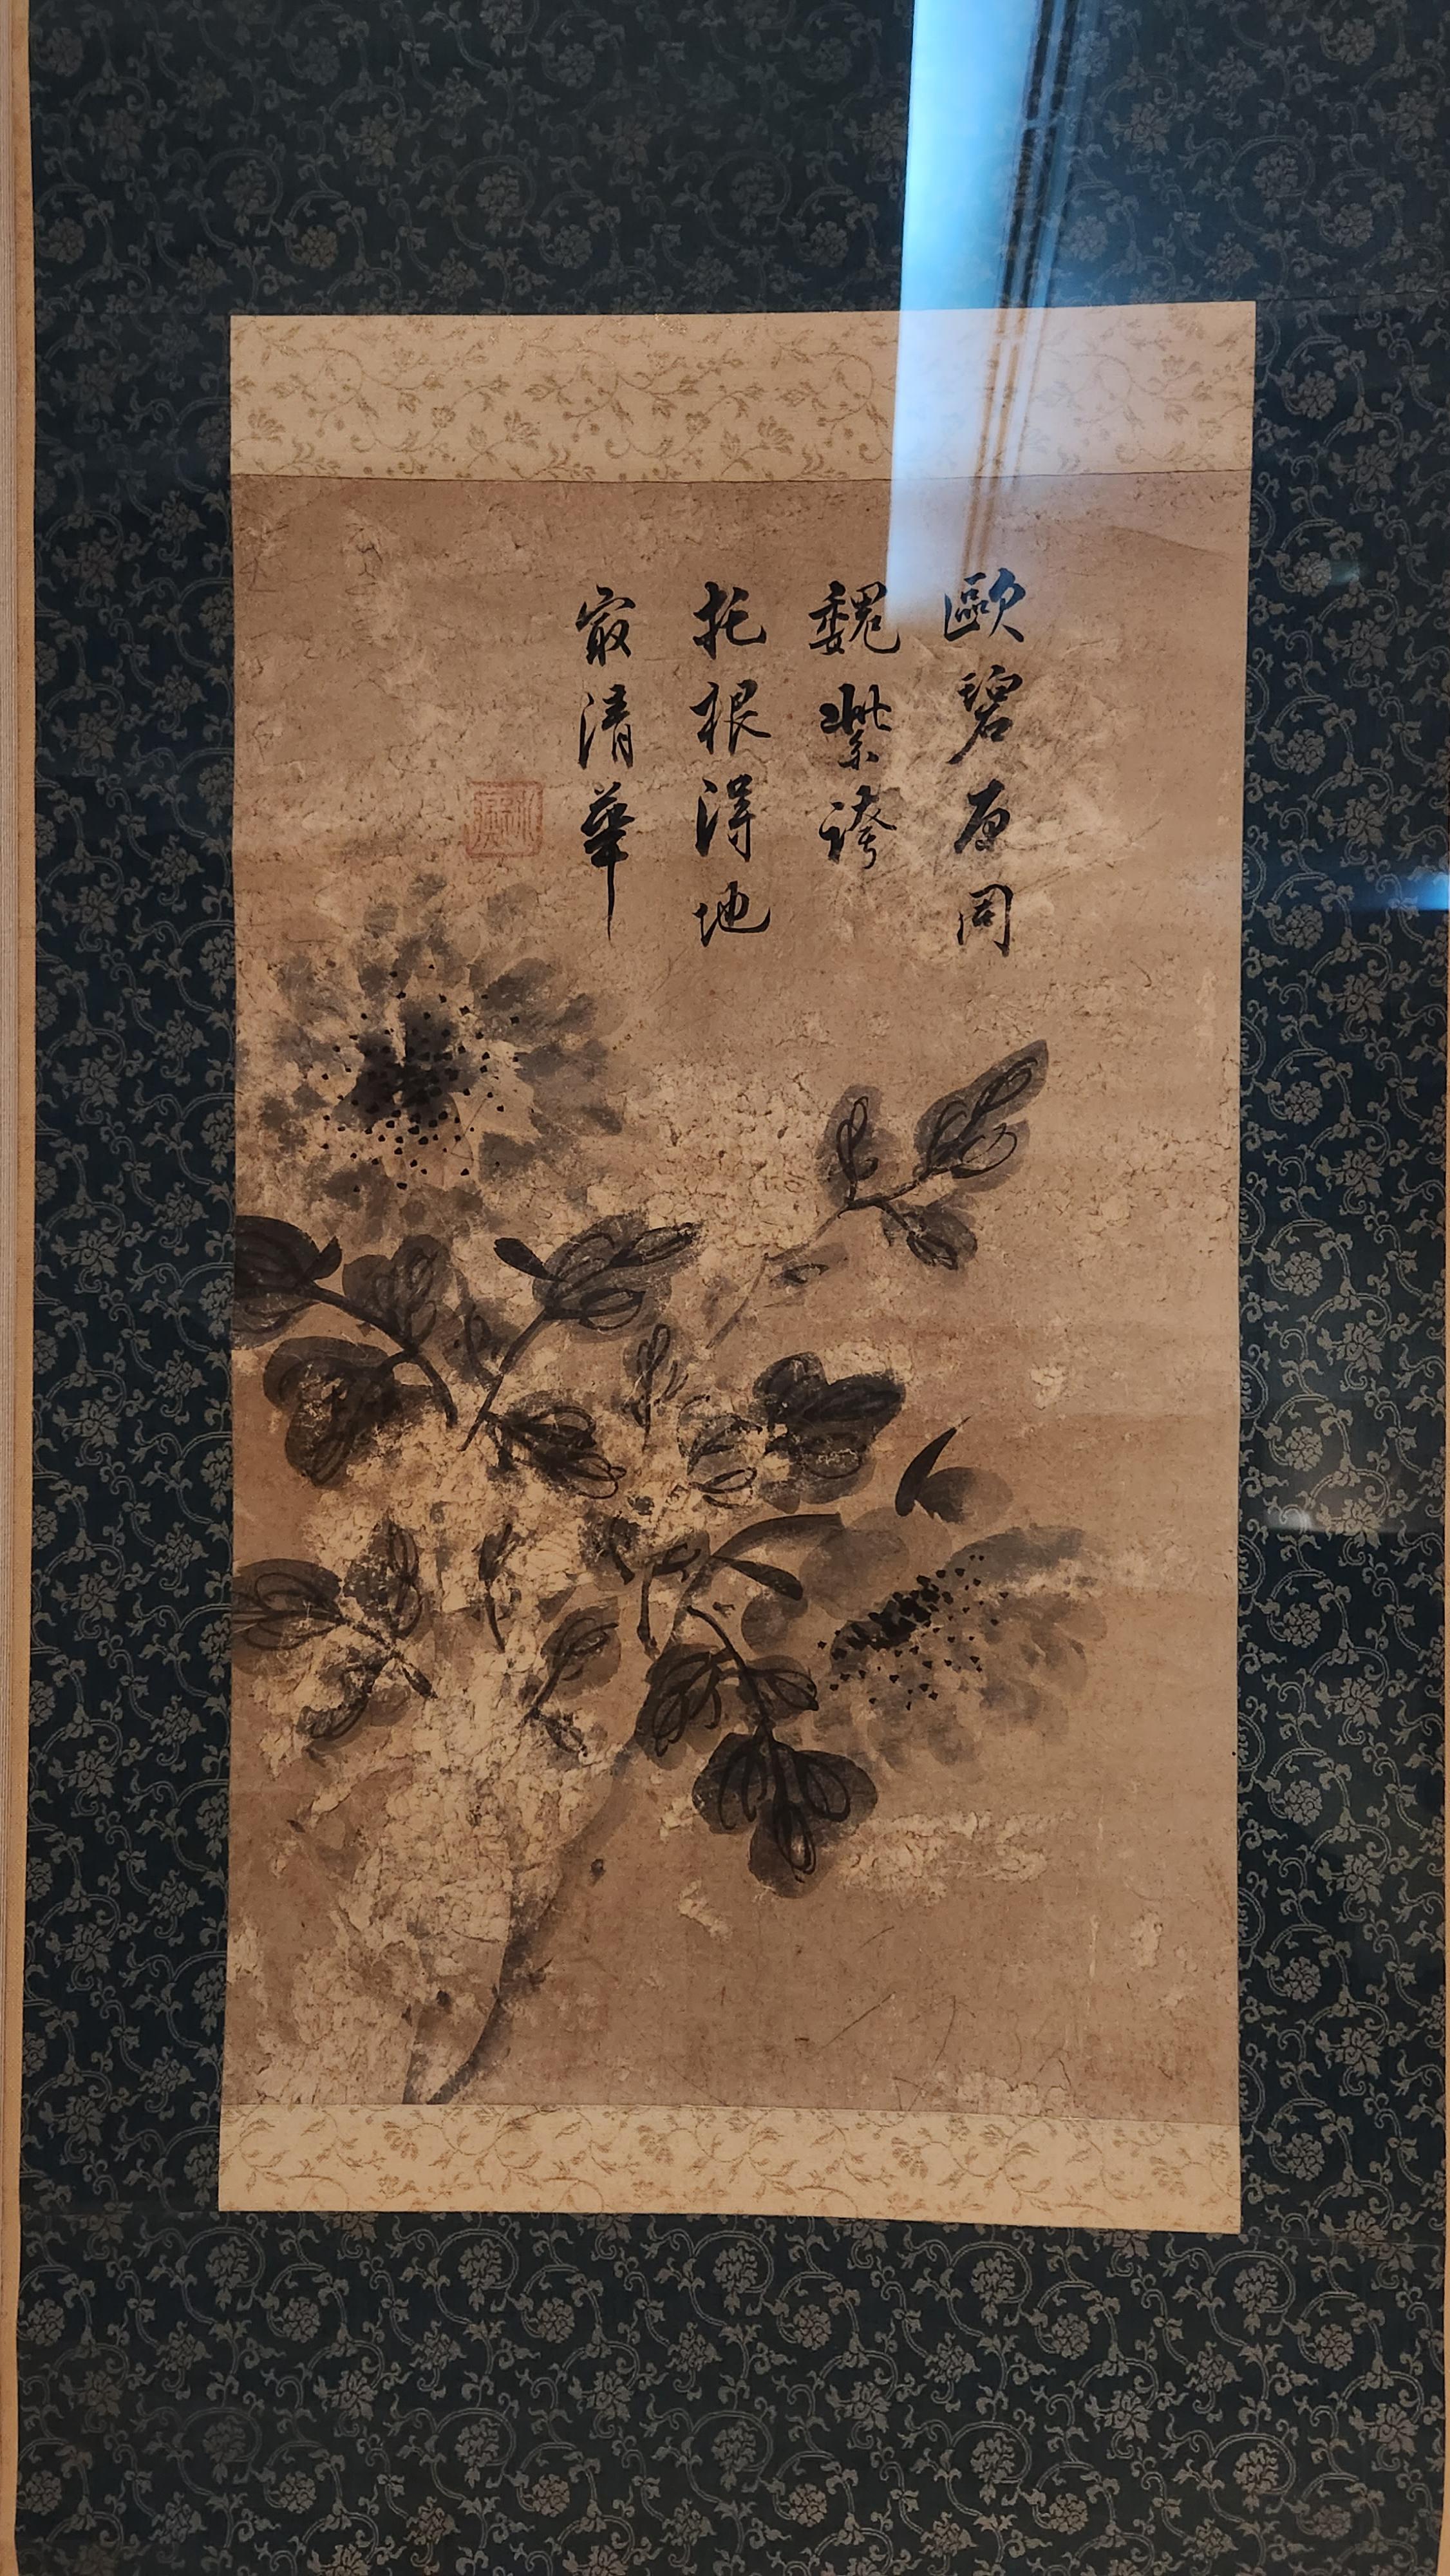 歐碧原同
魏紫誇
托根得地
最清華